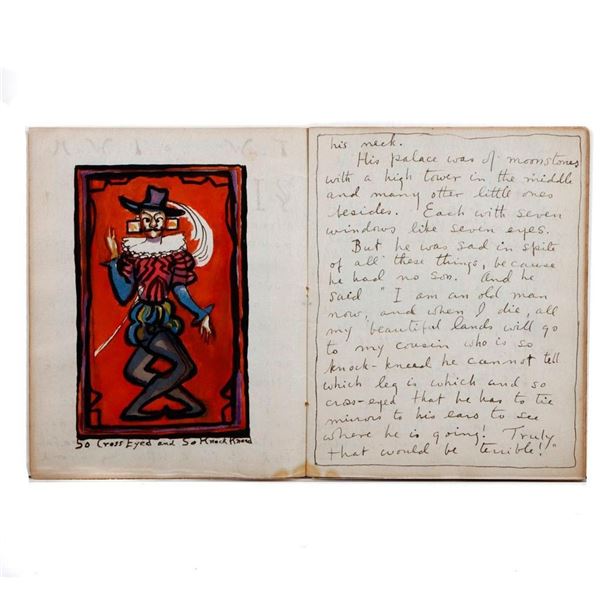 So Cross Eyed and So Knock Kneed
his neck.
His palace was of moonstones
with a high tower in the middle
and many other little ones
besides. Each with seven
windows like seven eyes.
But he was sad in spite
of all these things, because
he had no son. And he
said "I am an old man
now, and when I die, all
my beautiful lands will go
to my cousin who is so
knock-kneed he cannot tell
which leg is which and so
cross-eyed that he has to tie
mirrors to his ears to see
where he is going! Truly
that would be terrible!"